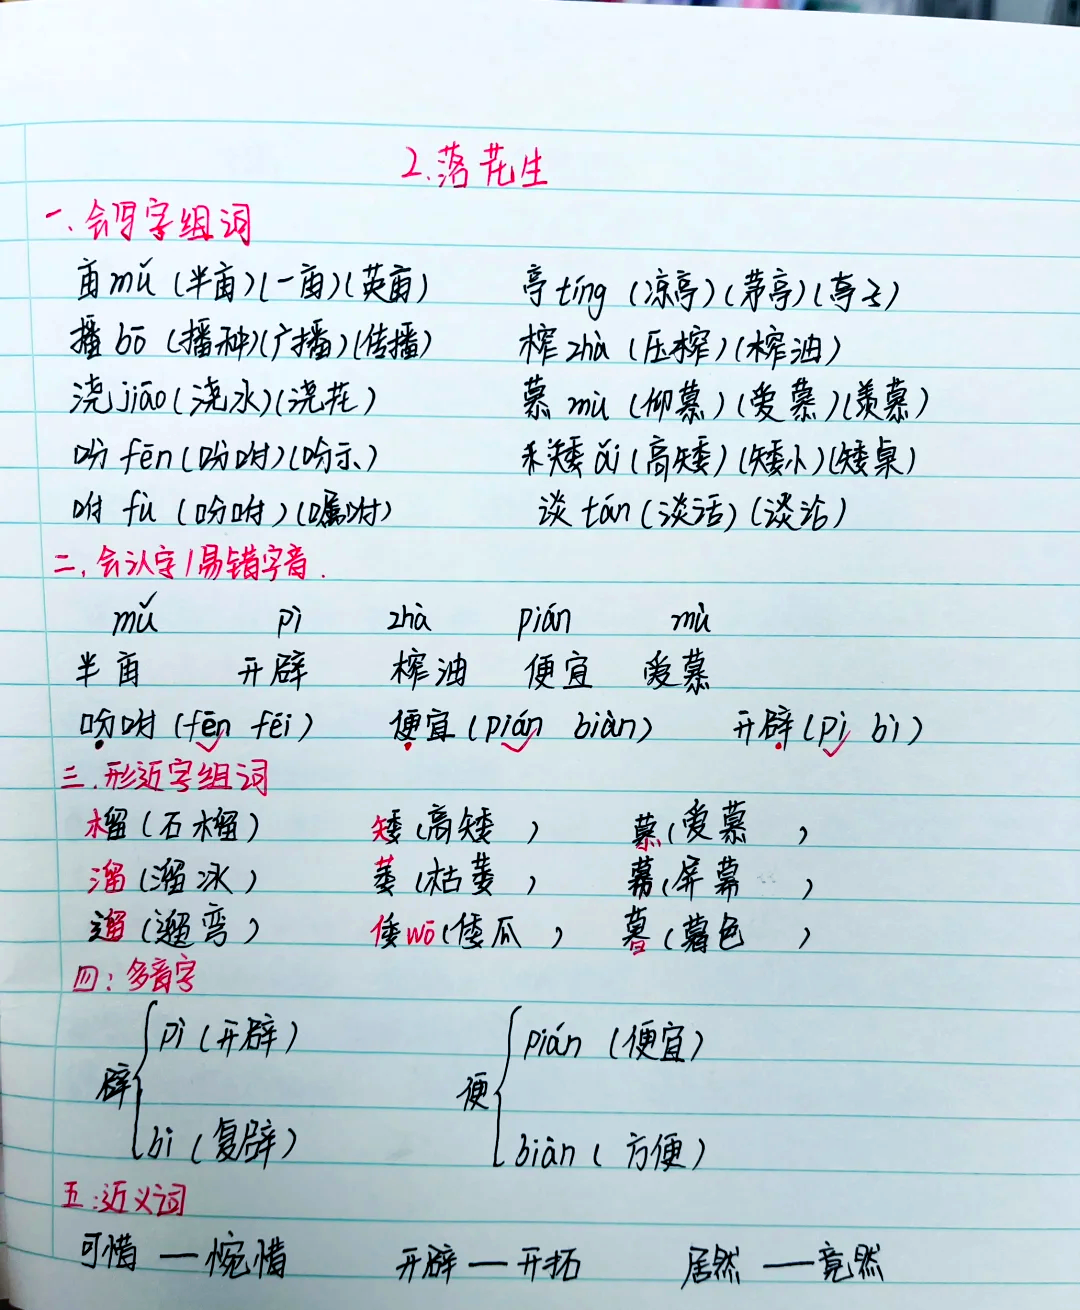 2.落花生
一.会写字组词
亩mǔ(半亩)(一亩)(英亩) 亭tíng(凉亭)(茅亭)(亭子)
播bō(播种)(广播)(传播) 榨zhà(压榨)(榨油)
浇jiāo(浇水)(浇花) 慕mù(仰慕)(爱慕)(羡慕)
吩fēn(吩咐)(吩示) 矮ǎi(高矮)(矮小)(矮桌)
咐fù(吩咐)(嘱咐) 谈tán(谈话)(谈论)
二.会认字/易错字音.
mǔ pì zhà pián mù
半亩 开辟 榨油 便宜 爱慕
吩咐(fēn fēi) 便宜(pián biàn) 开辟(pì bì)
三.形近字组词
榴(石榴) 矮(高矮) 慕(爱慕)
溜(溜冰) 萎(枯萎) 幕(屏幕)
遛(遛弯) 倭wō(倭瓜) 暮(暮色)
四:多音字
辟 pì(开辟) 便 pián(便宜)
bì(复辟) biàn(方便)
五:近义词
可惜—惋惜 开辟—开拓 居然—竟然